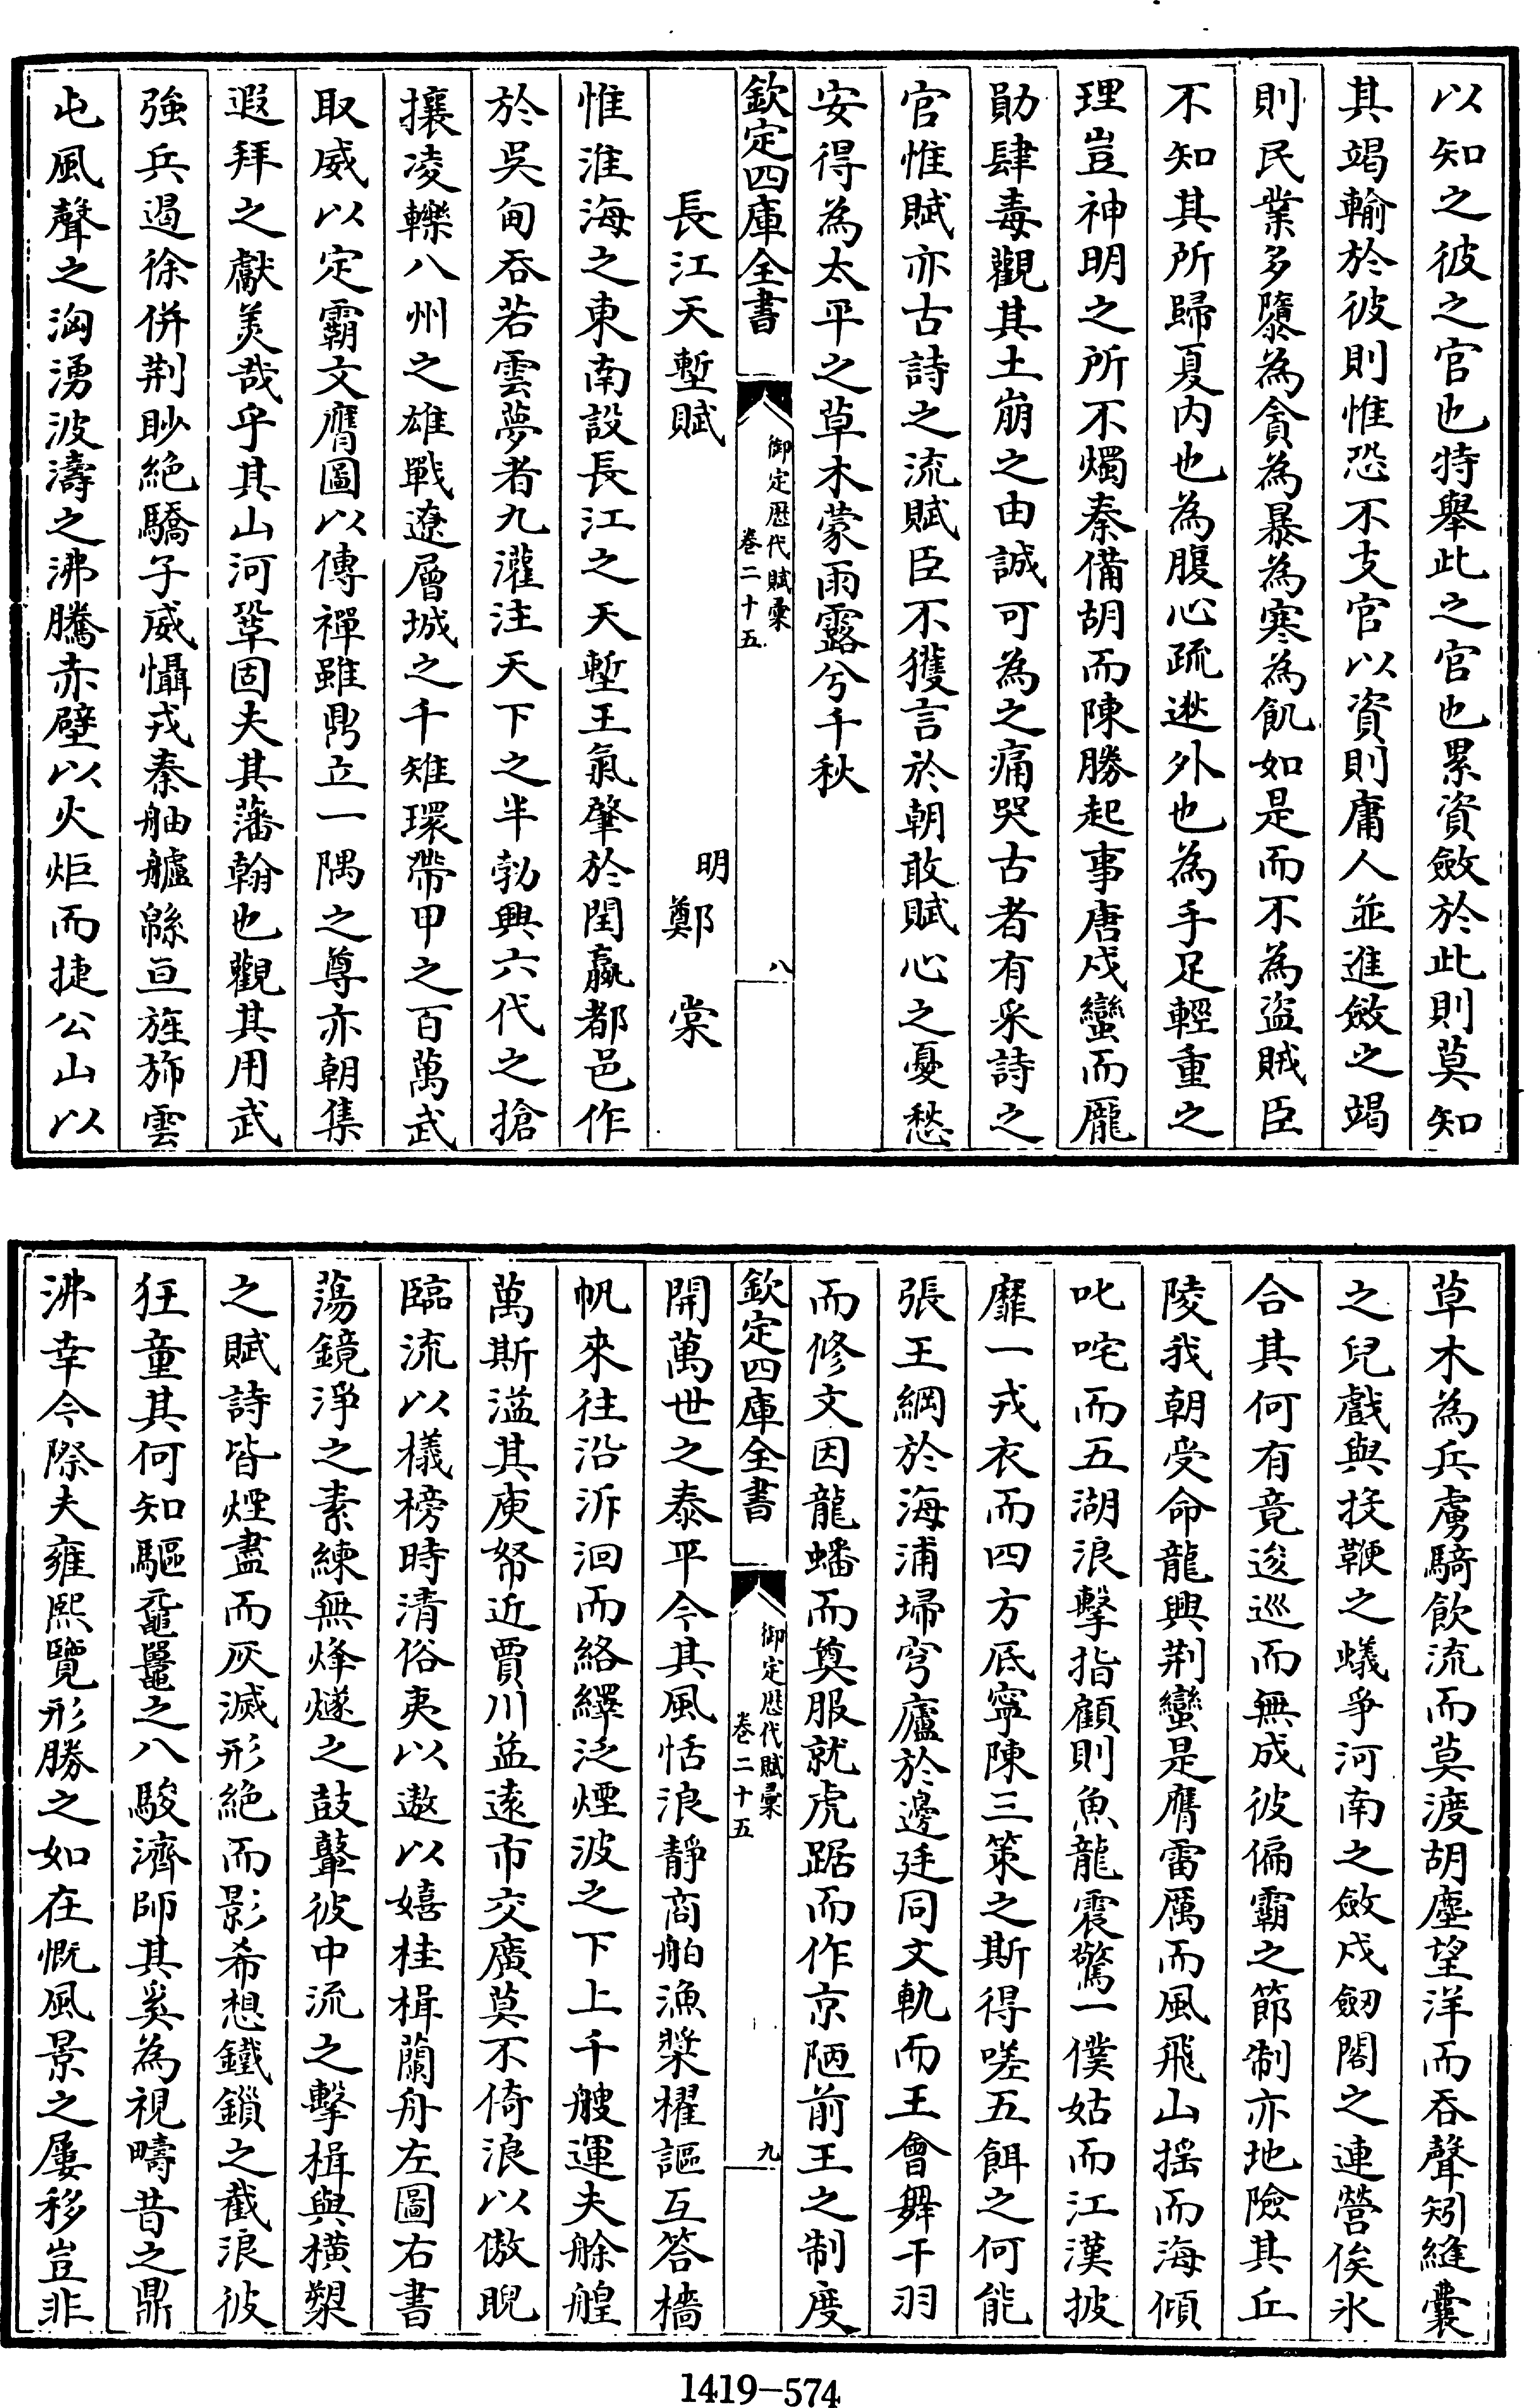 以知之彼之官也特舉此之官也累資斂於此則莫知
其竭輸於彼則惟恐不支官以資則庸人並進斂之竭
則民業多隳為貪為暴為寒為飢如是而不為盜賊臣
不知其所歸夏内也為腹心疏逖外也為手足輕重之
理豈神明之所不燭秦備胡而陳勝起事唐戍蠻而龎
勛肆毒觀其土崩之由誠可為之痛哭古者有采詩之
官惟賦亦古詩之流賦臣不獲言於朝敢賦心之憂愁
安得為太平之草木蒙雨露兮千秋
欽定四庫全書
御定歴代賦彙
卷二十五
八
長江天塹賦
明鄭棠
惟淮海之東南設長江之天塹王氣肇於閏嬴都邑作
於吳甸吞若雲夢者九灌注天下之半勃興六代之搶
攘凌轢八州之雄戰遼層城之千雉環帶甲之百萬武
取威以定霸文膺圖以傳禪雖鼎立一隅之尊亦朝集
遐拜之獻美哉乎其山河鞏固夫其藩翰也觀其用武
強兵遏徐併荆眇絶驕子威懾戎秦舳艫緜亘旌斾雲
屯風聲之洶湧波濤之沸騰赤壁以火炬而捷公山以
草木為兵虜騎飲流而莫渡胡塵望洋而吞聲矧縫囊
之兒戲與投鞭之蟻爭河南之斂戍劒閣之連營俟氷
合其何有竟逡巡而無成彼偏霸之節制亦地險其丘
陵我朝受命龍興荆蠻是膺雷厲而風飛山揺而海傾
叱咤而五湖浪擊指顧則魚龍震驚一僕姑而江漢披
靡一戎衣而四方底寧陳三策之斯得嗟五餌之何能
張王綱於海浦埽穹廬於邊廷同文軌而王會舞干羽
而修文因龍蟠而奠服就虎踞而作京陋前王之制度
欽定四庫全書
御定歴代賦彙
卷二十五
九
開萬世之泰平今其風恬浪靜商舶漁槳櫂謳互答檣
帆來往沿泝洄而絡繹泛煙波之下上千艘運夫艅艎
萬斯溢其庾帑近賈川益遠市交廣莫不倚浪以傲睨
臨流以檥榜時清俗夷以遨以嬉桂楫蘭舟左圖右書
蕩鏡淨之素練無烽燧之鼓鼙彼中流之擊楫與橫槊
之賦詩皆煙盡而灰滅形絶而影希想鐵鎖之截浪彼
狂童其何知驅黿鼉之八駿濟師其奚為視疇昔之鼎
沸幸今際夫雍熙覽形勝之如在慨風景之屢移豈非
1419-574